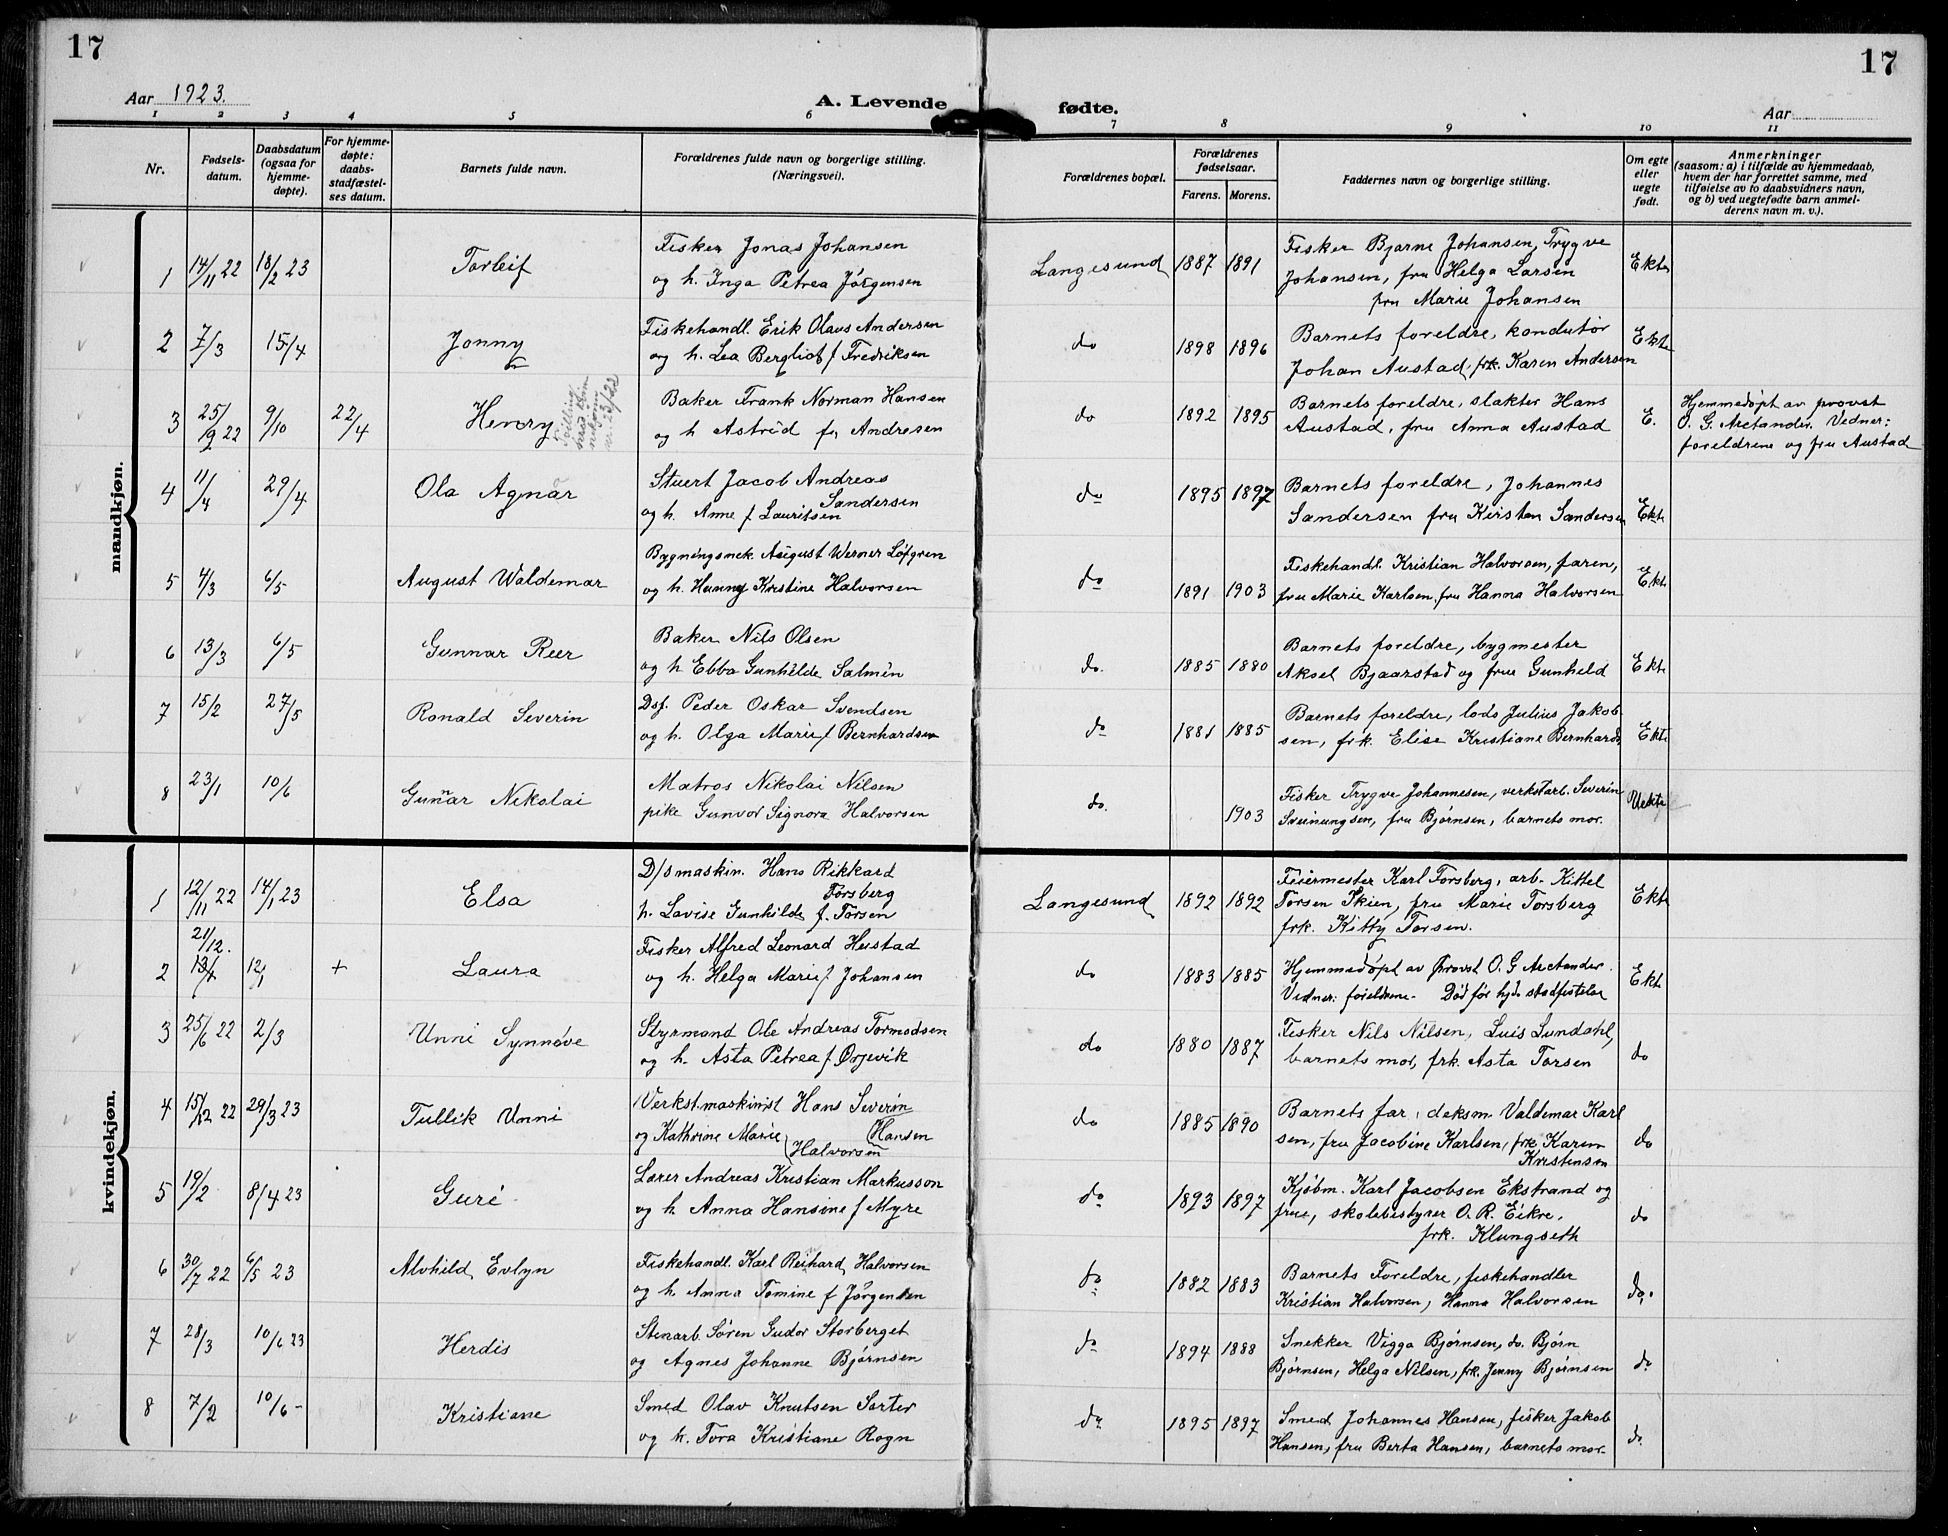 17
Aar 1923.
A. Levende
1 2 3 4 5 6
Nr.
Fødsels-
datum.
Daabsdatum
(ogsaa for
hjemme-
døpte).
For hjemme-
døpte:
daabs-
stadfæstel-
ses datum.
Barnets fulde navn.
Forældrenes fulde navn og borgerlige stilling.
(Næringsvei).
mandkjøn.
1 14/11 22 18/2 23 Torleif Fisker Jonas Johansen
og h. Inga Petrea Jörgensen
2 7/3 15/4 Jonny Fiskehandl. Erik Olaus Andersen
og h. Lea Bergliot f Fredriksen
3 25/9 22 9/10 22/4 Henry Baker Frank Norman Hansen
og h Astrid f. Andresen
4 11/4 29/4 Ola Agnar Stuert Jacob Andreas
Sandersen
og h. Anne f Lauritsen
5 4/3 6/5 August Waldemar Bygningsnek. August Werner Löfgren
og h. Hanny Kristine Halvorsen
6 13/3 6/5 Gunnar Reer Baker Nils Olsen
og h Ebba Gunhilde Salmén
7 15/2 27/5 Ronald Severin Dsf. Peder Oskar Svendsen
og h. Olga Marie f Bernhardsen
8 23/1 10/6 Gunnar Nikolai Matros Nikolai Nilsen
pike Gunvor Signora Halvorsen
kvindekjøn.
1 12/11 22 14/1 23 Elsa D/s maskin. Hans Rikkard
Forsberg
h. Lovise Gunhilde f. Torsen
2 21/12. 12/1 + Laura Fisker Alfred Leonard Heistad
og h. Helga Marie f Johansen
3 25/6 22 2/3 Unni Synnöve Styrmand Ole Andreas Tormodsen
og h. Asta Petrea f Ørjevik
4 15/12 22 29/3 23 Tullik Unni Verkst.maskinist Hans Severin
Hansen
og Kathrine Marie
Halvorsen
5 19/2 8/4 23 Guri Lærer Andreas Kristian Markusson
og h Anna Hansine f Myre
6 30/7 22 6/5 23 Alvhild Evlyn Fiskehandl. Karl Reihard Halvorsen
og h. Anna Tomine f Jörgensen
7 28/3 10/6 23 Herdis Stenarb. Sören Gudor Storberget
og Agnes Johanne Björnsen
8 7/2 10/6 - Kristiane Smed Olav Knutsen Sorter
og h. Tora Kristiane Rogn
17
fødte.
Aar
7 8 9 10 11
Forældrenes bopæl.
Forældrenes
fødselsaar.
Farens. Morens.
Faddernes navn og borgerlige stilling.
Om egte
eller
uegte
født.
Anmerkninger
(saasom: a) i tilfælde av hjemmedaab,
hvem der har forrettet samme, med
tilføielse av to daabsvidners navn,
og b) ved uegtefødte barn anmel-
derens navn m. v.).
Langesund 1887 1891 Fisker Bjarne Johansen, Trygve
Johansen, fru Helga Larsen
fru Marie Johansen Ekte
do 1898 1896 Barnets foreldre, kondutör
Johan Austad, frk. Karen Andersen Ekte
do 1892 1895 Barnets foreldre, slakter Hans
Austad, fru Anna Austad E.
Hjemmedøpt av provst
O. G. Arctander. Vidner:
foreldrene og fru Austad
do 1895 1897 Barnets foreldre, Johannes
Sandersen fru Kirsten Sandersen Ekte
do 1891 1903 Fiskehandl. Kristian Halvorsen, faren,
fru Marie Karlsen, fru Hanna Halvorsen Ekte
do. 1885 1880 Barnets foreldre, bygmester
Aksel Bjaarstad og frue Gunhild Ekte
do 1881 1885 Barnets foreldre, lods Julius Jakob
sen, frk. Elise Kristiane Bernhards Ekte
do. 1903 Fisker Trygve Johannesen, verkstarb. Severin
Sveinungsen, fru Björnsen, barnets mor. Uekte
Langesund 1892 1892 Feiermester Karl Forsberg, arb. Kittel
Torsen Skien, fru Marie Forsberg
frk. Kitty Torsen. Ekte
do 1883 1885 Hjemmedöpt av Provst O. G Arctander.
Vidner: foreldrene. Död för hjd. stadfestelse Ekt.
do 1880 1887 Fisker Nils Nilsen, Luis Lundahl,
barnets mor, frk. Asta Torsen do
do 1885 1890 Barnets far, deksm. Valdemar Karl
sen, fru Jacobine Karlsen, frk Karen
Kristensen do
do 1893 1897 Kjøbm. Karl Jacobsen Ekstrand og
frue, skolebestyrer O. R. Eikre.
frk. Klungseth do
do 1882 1883 Barnets Foreldre, fiskehandler
Kristian Halvorsen, Hanna Halvorsen do.
do 1894 1888 Snekker Vigga Björnsen, do. Björn
Björnsen, Helga Nilsen, frk. Jenny Björnsen do
do 1895 1897 Smed Johannes Hansen, fisker Jakob
Hansen, fru Berta Hansen, barnets mor. do.